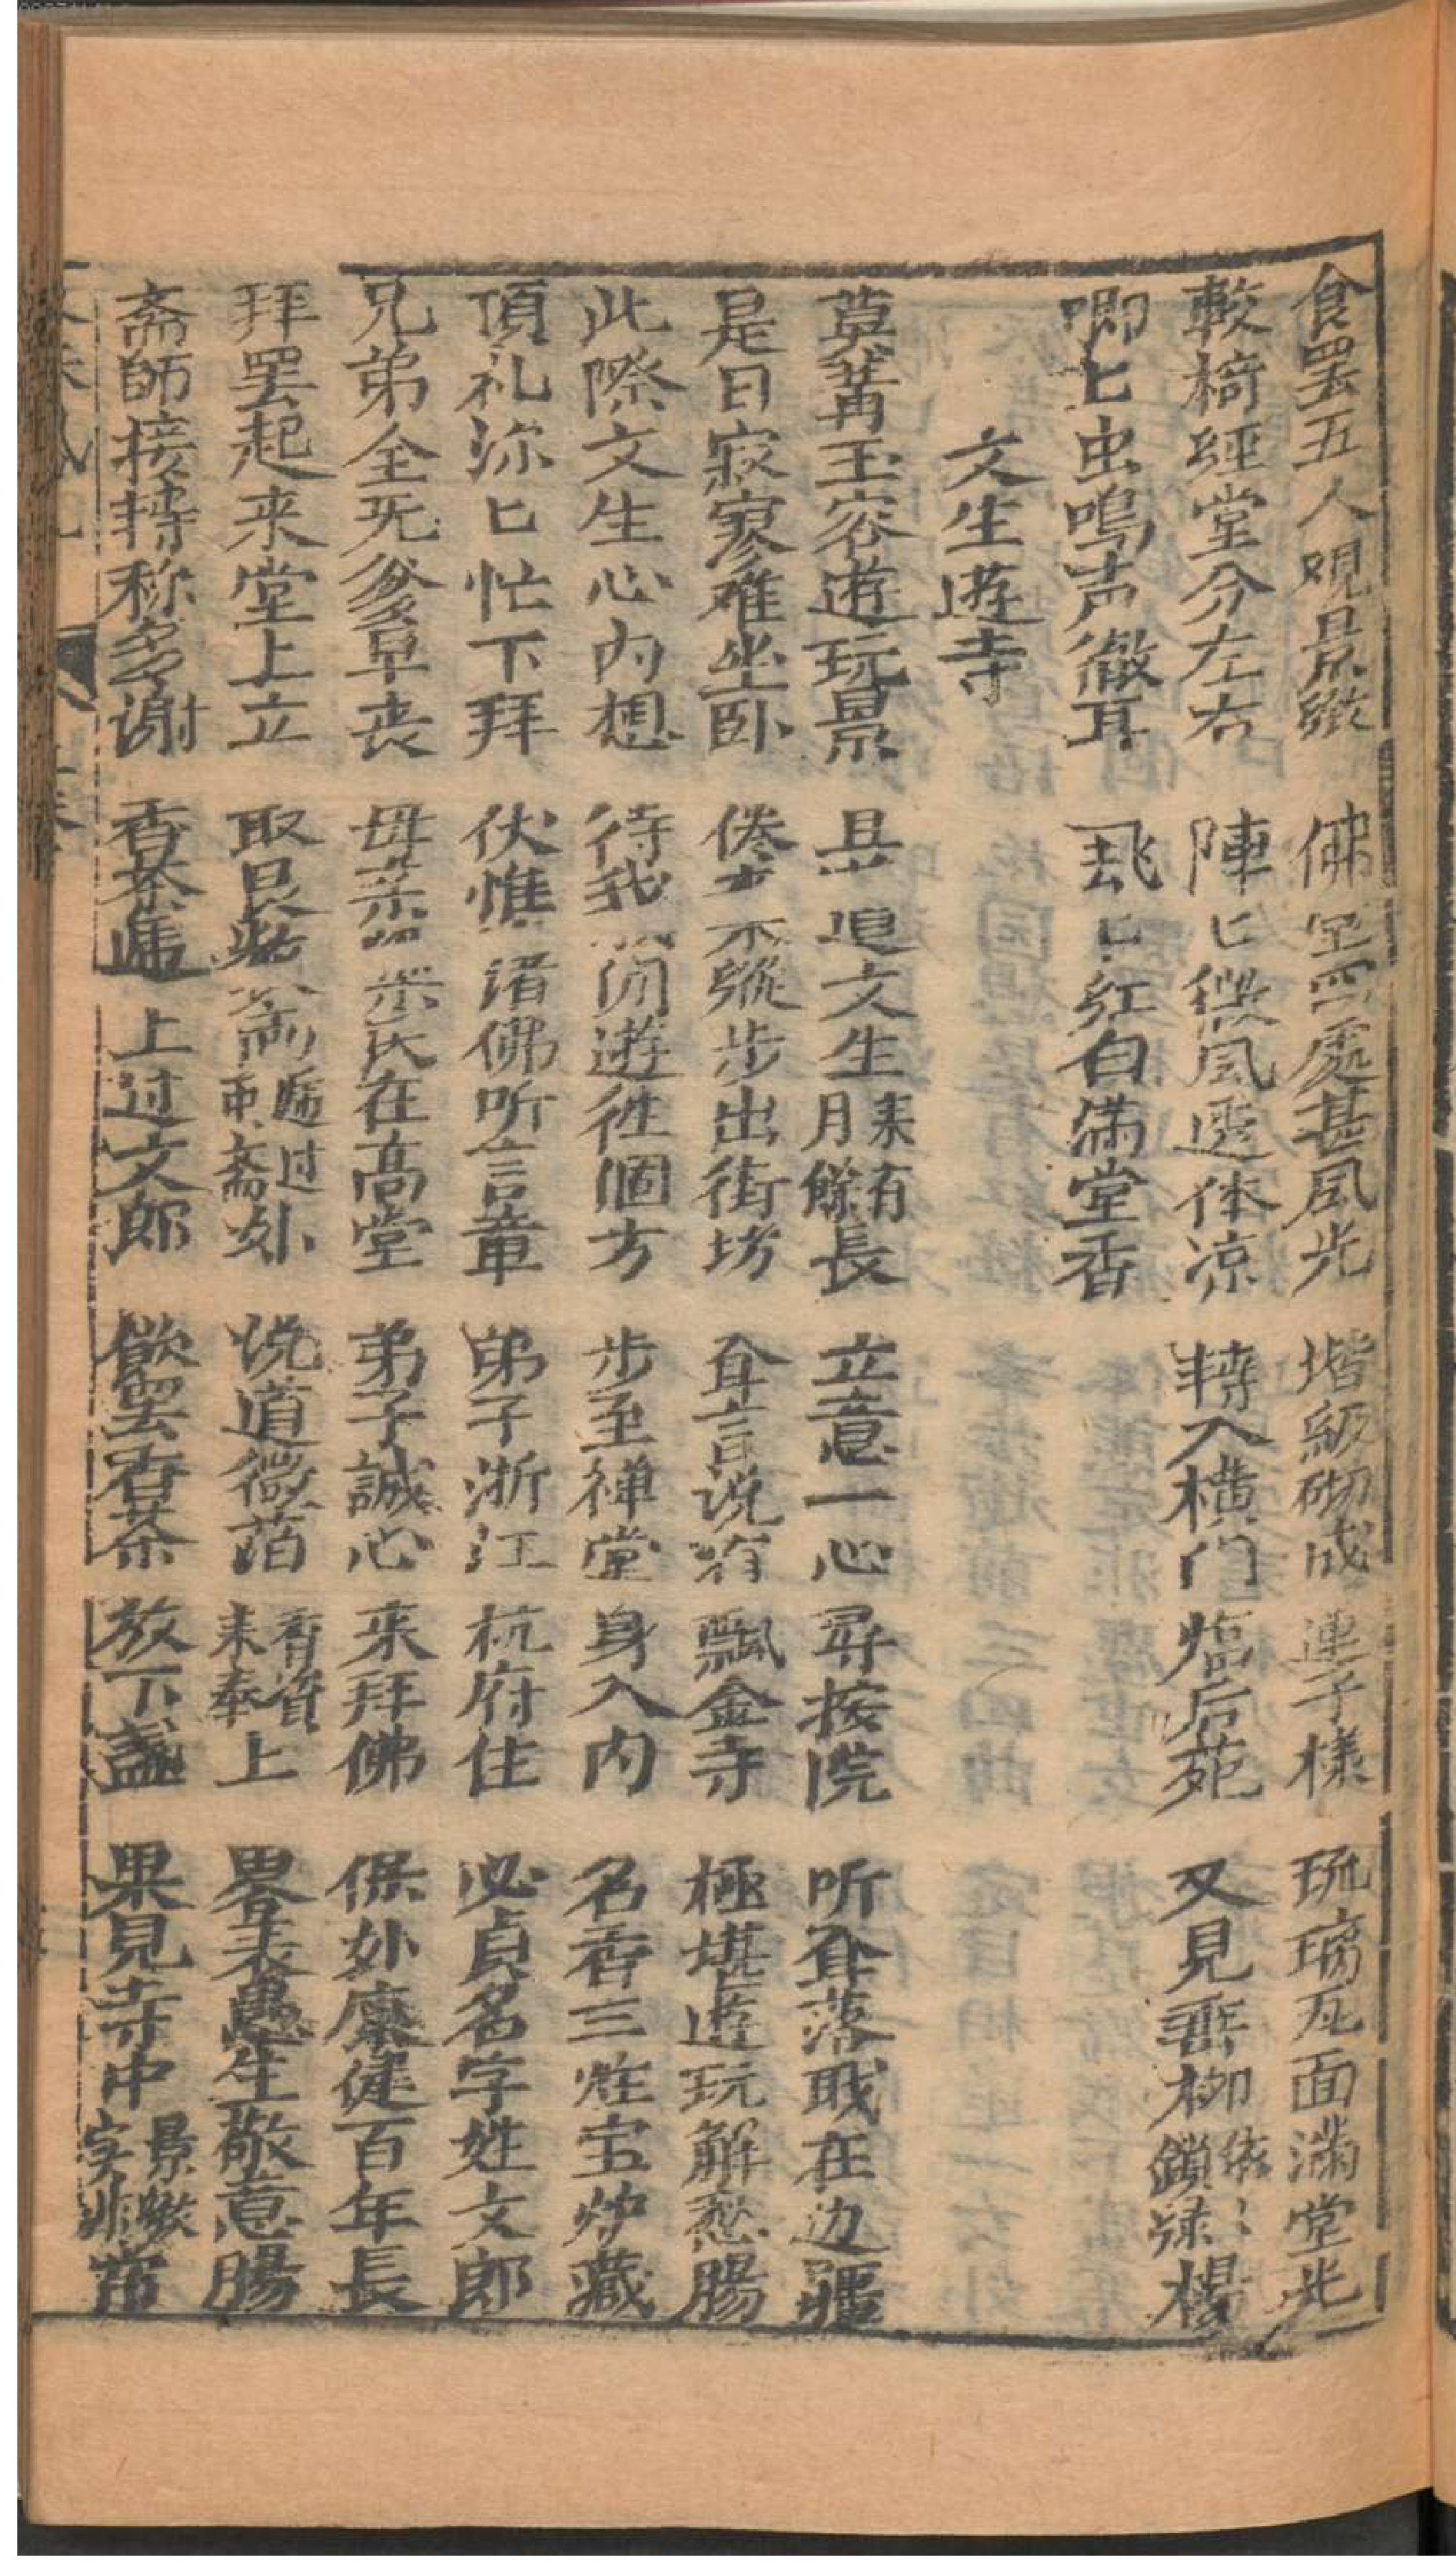 食罢五人观景致 佛堂四處甚風光 堦級砌成連子樣 琉璃瓦面滿堂光
較椅经堂分左右 陣匕傑風透体凉 轉入横门临后苑 又見垂柳依〻鎖绿楊
唧匕虫鳴声徹耳 飛匕红白满堂香
文生遊寺
莫講玉容遊玩景 且 追文生来有月餘長 立意一心尋按院 听耳落耽在边疆
是日寂寥难坐卧 倦步不縱步出街坊 耳言说有飄金寺 極堪遊玩解愁腸
此際文生心内想 待我 闲遊徃個方 步至禅堂身入内 名香三炷宝炉藏
頂礼弥匕忙下拜 伏惟诸佛听言章 弟子浙江杭府住 必貞名字姓文郎
兄弟全无爹早丧 母亲 氏在髙堂 弟子誠心来拜佛 保外康健百年長
拜罢起来堂上立 取艮 斋 过 斋 说道微菬香資来奉上 畧表愚生敬意腸
斋師接转称多谢 香茶 上过文郎 飲罢香茶放下盏 果見寺中景致字非常